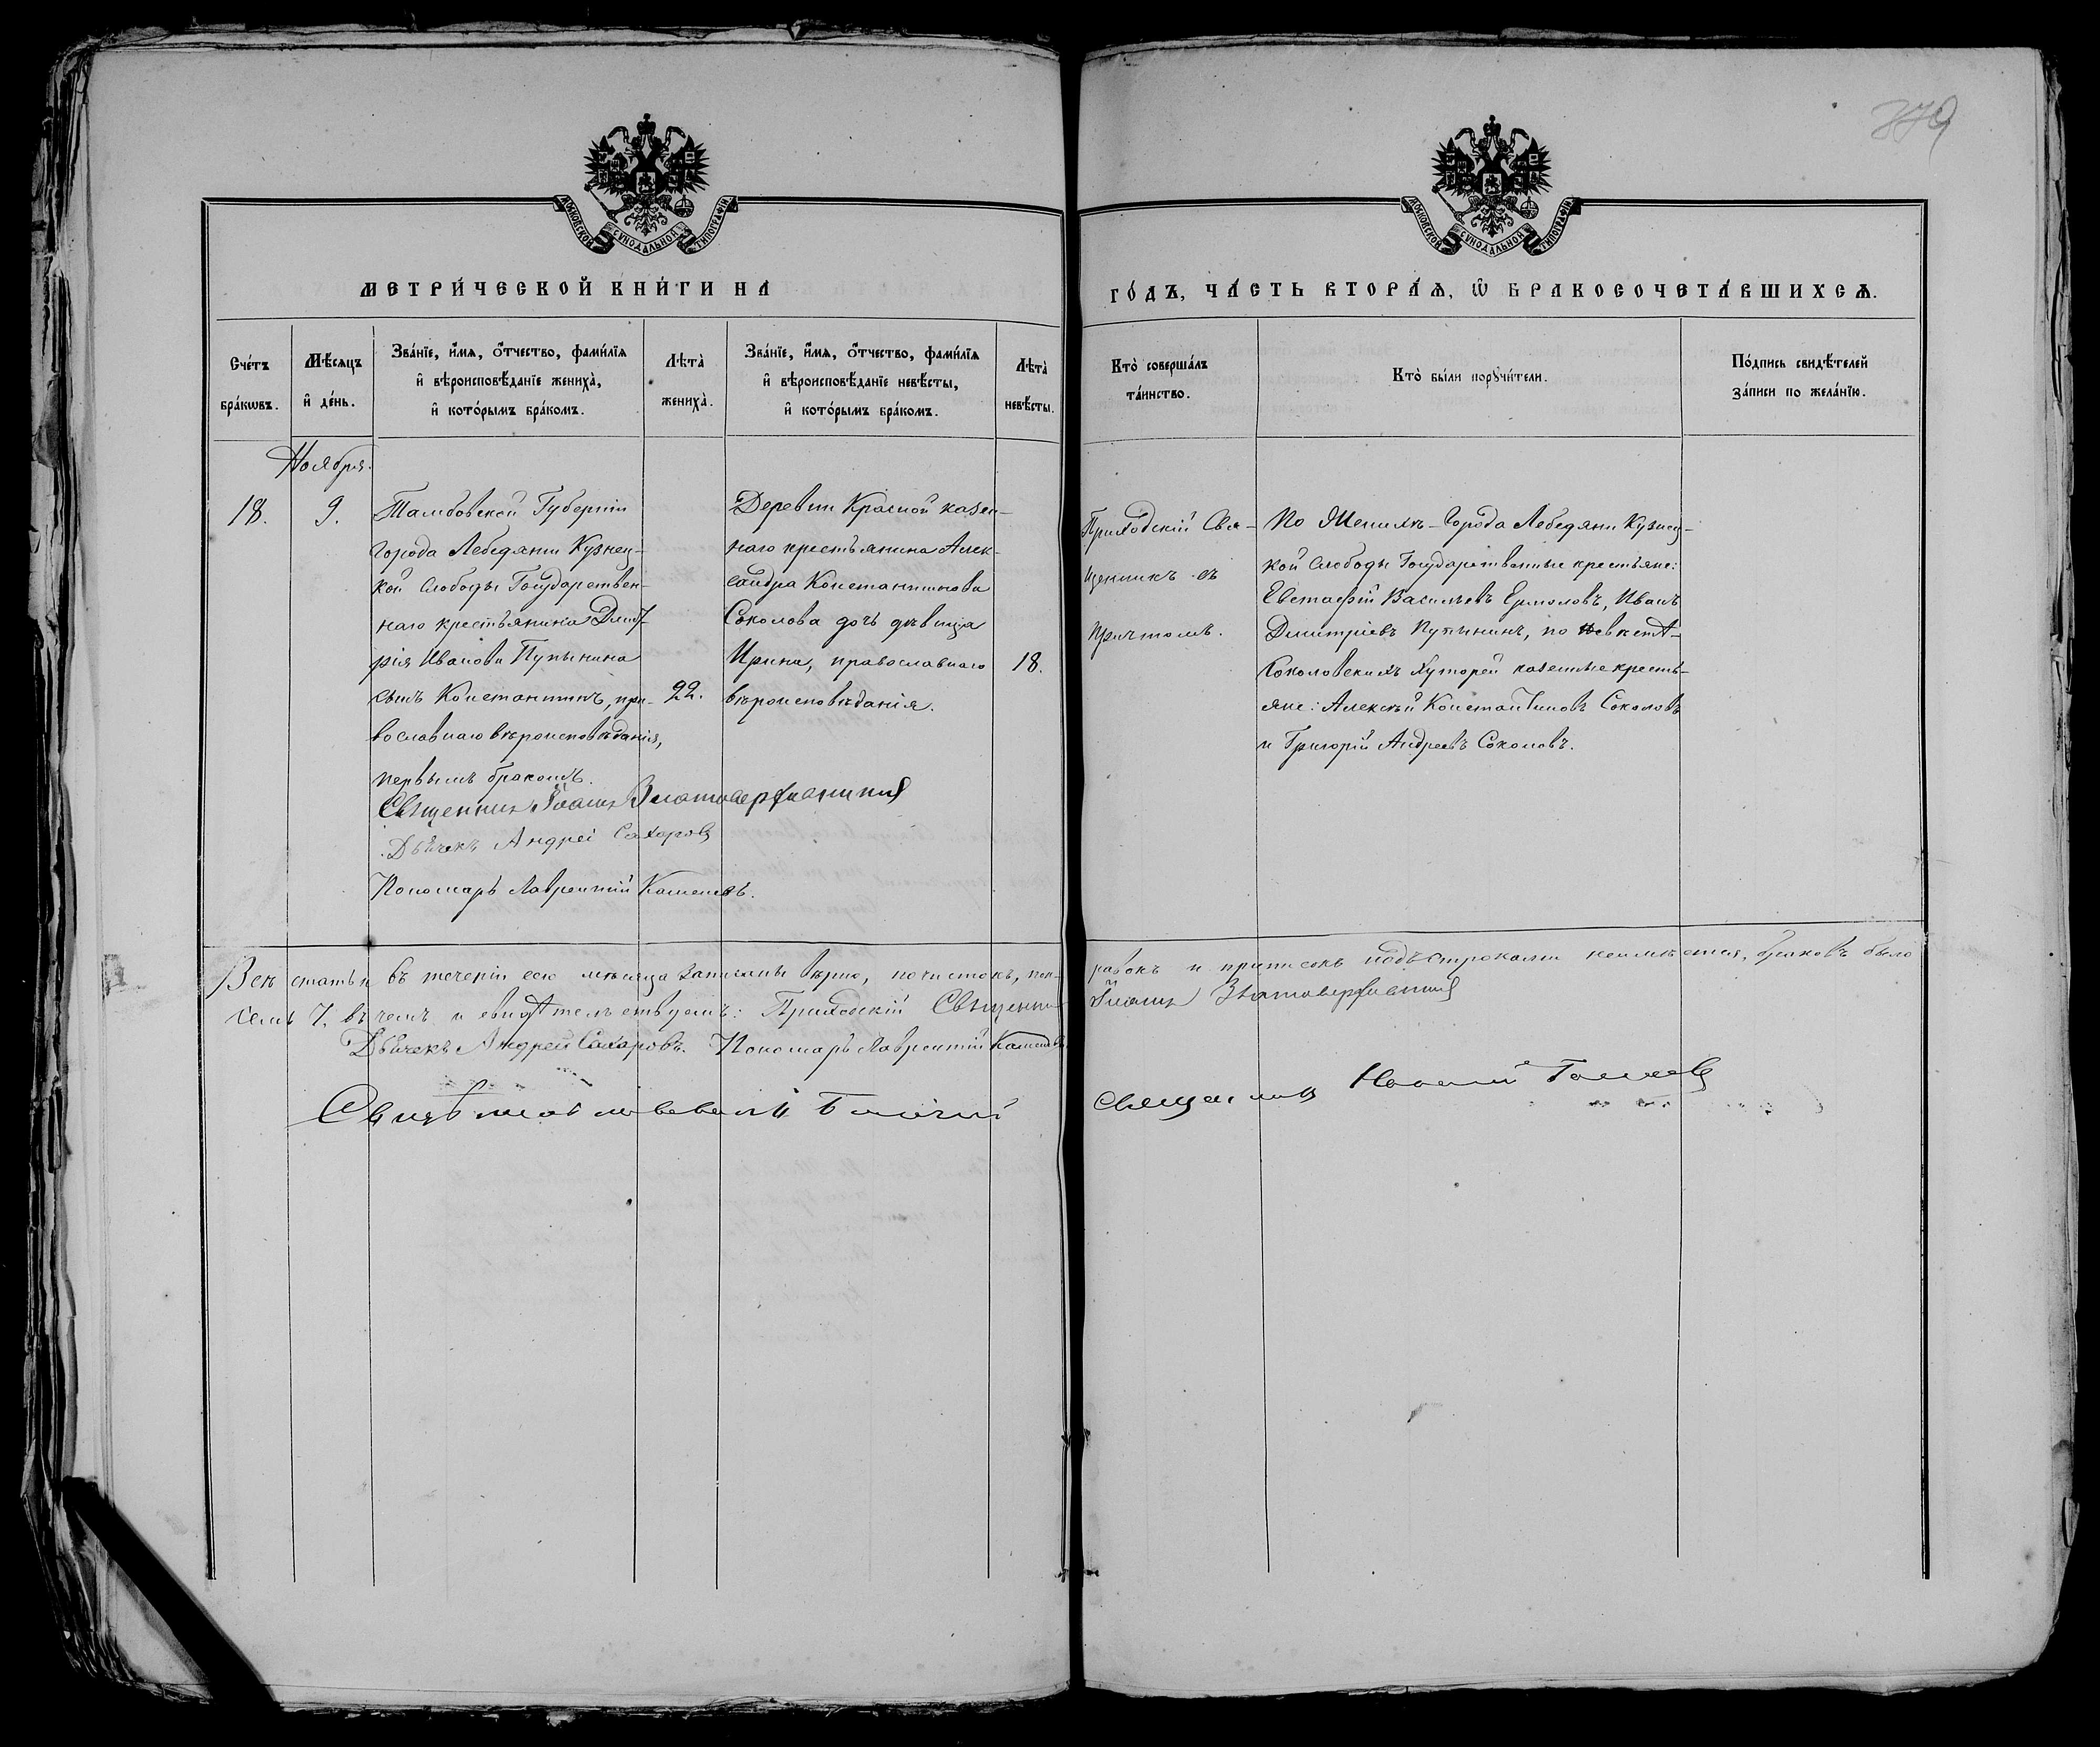 379
МОСКОВСКОЙ СУНОДАЛЬНОЙ ТИПОГРАФІИ
МОСКОВСКОЙ СУНОДАЛЬНОЙ ТИПОГРАФІИ
МЕТРИ́ЧЕСКОЙ КНИ́ГИ НА
ГО́ДЪ, ЧА́СТЬ ВТОРА́Ѧ, Ѽ БРАКОСОЧЕТА́ВШИХСѦ.
Сче́тъ
бра́кѡвъ.
Мѣ́сѧцъ
и҆ де́нь.
Зва́нїе, и҆́мѧ, ѻ҆́тчество, фами́лїѧ
и҆ вѣроисповѣ́данїе жениха̀,
и҆ кото́рымъ бра́комъ.
Лѣта̀
жениха̀.
Зва́нїе, и҆́мѧ, ѻ҆́тчество, фами́лїѧ
и҆ вѣроисповѣ́данїе невѣ́сты,
и҆ кото́рымъ бра́комъ.
Лѣта̀
невѣ́сты.
Кто̀ соверша́лъ
та́инство.
Кто̀ бы́ли порꙋчи́тели.
По́дпись свидѣ́телей
за́писи по жела́нїю.
Ноября.
18.
9.
Тамбовской Губерніи
города Лебедяни Кузнец-
кой Слободы Государствен-
наго крестьянина Дмит-
рія Иванова Пупынина
сынъ Константинъ, пра-
вославнаго вѣроисповѣданія,
первымъ бракомъ.
22.
Деревни Красной казен-
наго крестьянина Алек-
сандра Константинова
Соколова дочь дѣвица
Ирина, православнаго
вѣроисповѣданія.
18.
Приходскій Свя-
щенникъ съ
причтомъ.
По Женихѣ - Города Лебедяни Кузнец-
кой Слободы Государственные крестьяне:
Евстафій Васильевъ Ермоловъ, Иванъ
Дмитріевъ Пупынинъ, по невѣстѣ -
Соколовскихъ Хуторей казенные кресть-
яне: Алексѣй Константиновъ Соколовъ
и Григорій Андреевъ Соколовъ.
Священникъ Іоаннъ Златоверховниковъ
Дьячекъ Андрей Сахаровъ
Пономарь Лаврентій Каменевъ.
Всѣ статьи въ теченіи сего мѣсяца записаны вѣрно, почистокъ, поп-
равокъ и приписокъ подъ строками неимѣется, браковъ было
семь 7, въ чемъ и свидѣтельствуемъ: Приходскій Священникъ
Іоаннъ Златоверховниковъ
Дьячекъ Андрей Сахаровъ. Пономарь Лаврентій Каменевъ.
Свидѣтельствовалъ Благочинный
Священникъ